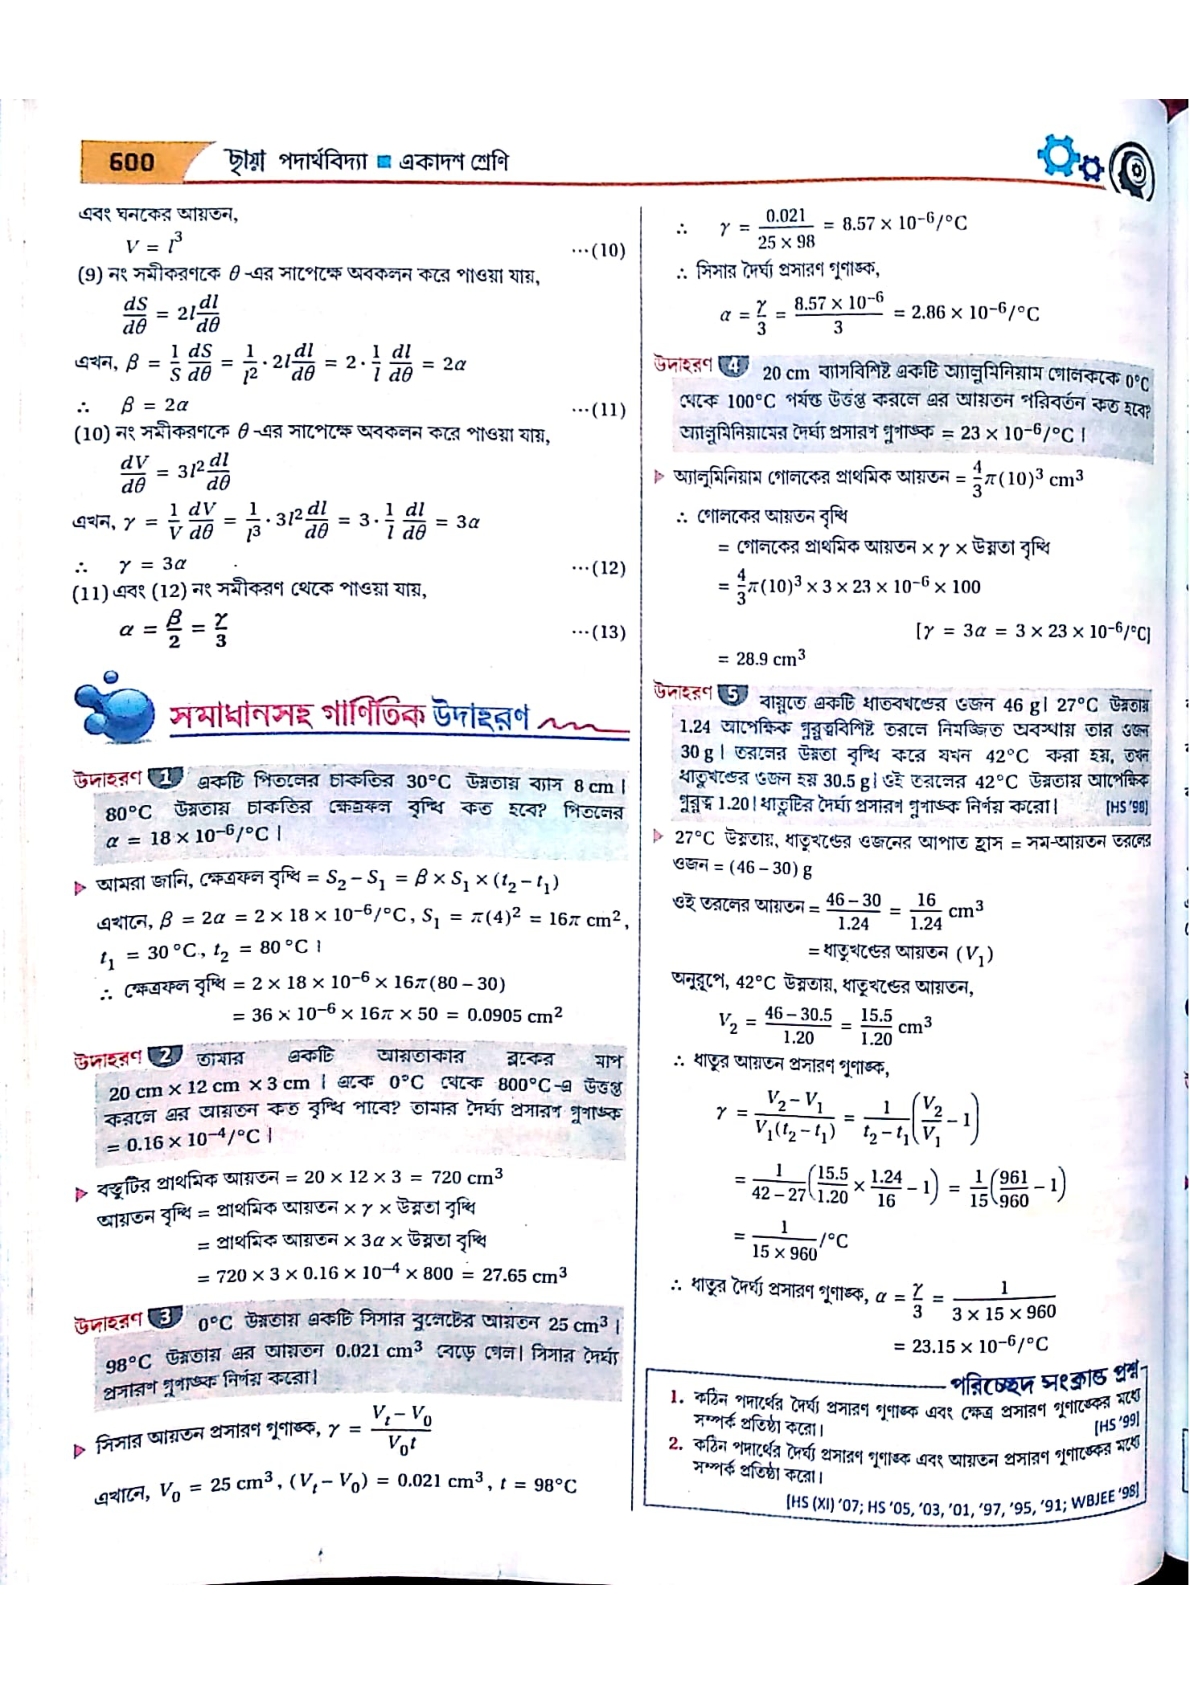 600 ছায়া পদার্থবিদ্যা ■ একাদশ শ্রেণি
এবং ঘনকের আয়তন,
V = l³ ...(10)
(9) নং সমীকরণকে θ-এর সাপেক্ষে অবকলন করে পাওয়া যায়,
dS/dθ = 2l dl/dθ
এখন, β = 1/S dS/dθ = 1/l² · 2l dl/dθ = 2 · 1/l dl/dθ = 2α
∴ β = 2α ...(11)
(10) নং সমীকরণকে θ-এর সাপেক্ষে অবকলন করে পাওয়া যায়,
dV/dθ = 3l² dl/dθ
এখন, γ = 1/V dV/dθ = 1/l³ · 3l² dl/dθ = 3 · 1/l dl/dθ = 3α
∴ γ = 3α ...(12)
(11) এবং (12) নং সমীকরণ থেকে পাওয়া যায়,
α = β/2 = γ/3 ...(13)
সমাধানসহ গাণিতিক উদাহরণ
উদাহরণ 1 একটি পিতলের চাকতির 30°C উষ্ণতায় ব্যাস 8 cm।
80°C উষ্ণতায় চাকতির ক্ষেত্রফল বৃদ্ধি কত হবে? পিতলের
α = 18 × 10⁻⁶/°C।
▶ আমরা জানি, ক্ষেত্রফল বৃদ্ধি = S₂ – S₁ = β × S₁ × (t₂ – t₁)
এখানে, β = 2α = 2 × 18 × 10⁻⁶/°C, S₁ = π(4)² = 16π cm²,
t₁ = 30°C, t₂ = 80°C।
∴ ক্ষেত্রফল বৃদ্ধি = 2 × 18 × 10⁻⁶ × 16π(80 – 30)
= 36 × 10⁻⁶ × 16π × 50 = 0.0905 cm²
উদাহরণ 2 তামার একটি আয়তাকার ব্লকের মাপ
20 cm × 12 cm × 3 cm। একে 0°C থেকে 800°C-এ উত্তপ্ত
করলে এর আয়তন কত বৃদ্ধি পাবে? তামার দৈর্ঘ্য প্রসারণ গুণাঙ্ক
= 0.16 × 10⁻⁴/°C।
▶ বস্তুটির প্রাথমিক আয়তন = 20 × 12 × 3 = 720 cm³
আয়তন বৃদ্ধি = প্রাথমিক আয়তন × γ × উষ্ণতা বৃদ্ধি
= প্রাথমিক আয়তন × 3α × উষ্ণতা বৃদ্ধি
= 720 × 3 × 0.16 × 10⁻⁴ × 800 = 27.65 cm³
উদাহরণ 3 0°C উষ্ণতায় একটি সিসার বুলেটের আয়তন 25 cm³।
98°C উষ্ণতায় এর আয়তন 0.021 cm³ বেড়ে গেল। সিসার দৈর্ঘ্য
প্রসারণ গুণাঙ্ক নির্ণয় করো।
▶ সিসার আয়তন প্রসারণ গুণাঙ্ক, γ = (Vₜ – V₀)/(V₀t)
এখানে, V₀ = 25 cm³, (Vₜ – V₀) = 0.021 cm³, t = 98°C
∴ γ = 0.021/(25 × 98) = 8.57 × 10⁻⁶/°C
∴ সিসার দৈর্ঘ্য প্রসারণ গুণাঙ্ক,
α = γ/3 = (8.57 × 10⁻⁶)/3 = 2.86 × 10⁻⁶/°C
উদাহরণ 4 20 cm ব্যাসবিশিষ্ট একটি অ্যালুমিনিয়াম গোলককে 0°C
থেকে 100°C পর্যন্ত উত্তপ্ত করলে এর আয়তন পরিবর্তন কত হবে?
অ্যালুমিনিয়ামের দৈর্ঘ্য প্রসারণ গুণাঙ্ক = 23 × 10⁻⁶/°C।
▶ অ্যালুমিনিয়াম গোলকের প্রাথমিক আয়তন = 4/3 π(10)³ cm³
∴ গোলকের আয়তন বৃদ্ধি
= গোলকের প্রাথমিক আয়তন × γ × উষ্ণতা বৃদ্ধি
= 4/3 π(10)³ × 3 × 23 × 10⁻⁶ × 100
[γ = 3α = 3 × 23 × 10⁻⁶/°C]
= 28.9 cm³
উদাহরণ 5 বায়ুতে একটি ধাতবখণ্ডের ওজন 46 g। 27°C উষ্ণতায়
1.24 আপেক্ষিক গুরুত্ববিশিষ্ট তরলে নিমজ্জিত অবস্থায় তার ওজন
30 g। তরলের উষ্ণতা বৃদ্ধি করে যখন 42°C করা হয়, তখন
ধাতুখণ্ডের ওজন হয় 30.5 g। ওই তরলের 42°C উষ্ণতায় আপেক্ষিক
গুরুত্ব 1.20। ধাতুটির দৈর্ঘ্য প্রসারণ গুণাঙ্ক নির্ণয় করো। [HS '98]
▶ 27°C উষ্ণতায়, ধাতুখণ্ডের ওজনের আপাত হ্রাস = সম-আয়তন তরলের
ওজন = (46 – 30) g
ওই তরলের আয়তন = (46 – 30)/1.24 = 16/1.24 cm³
= ধাতুখণ্ডের আয়তন (V₁)
অনুরূপে, 42°C উষ্ণতায়, ধাতুখণ্ডের আয়তন,
V₂ = (46 – 30.5)/1.20 = 15.5/1.20 cm³
∴ ধাতুর আয়তন প্রসারণ গুণাঙ্ক,
γ = (V₂ – V₁)/(V₁(t₂ – t₁)) = 1/(t₂ – t₁) (V₂/V₁ – 1)
= 1/(42 – 27) (15.5/1.20 × 1.24/16 – 1) = 1/15 (961/960 – 1)
= 1/(15 × 960) /°C
∴ ধাতুর দৈর্ঘ্য প্রসারণ গুণাঙ্ক, α = γ/3 = 1/(3 × 15 × 960)
= 23.15 × 10⁻⁶/°C
পরিচ্ছেদ সংক্রান্ত প্রশ্ন
1. কঠিন পদার্থের দৈর্ঘ্য প্রসারণ গুণাঙ্ক এবং ক্ষেত্র প্রসারণ গুণাঙ্কের মধ্যে
সম্পর্ক প্রতিষ্ঠা করো। [HS '99]
2. কঠিন পদার্থের দৈর্ঘ্য প্রসারণ গুণাঙ্ক এবং আয়তন প্রসারণ গুণাঙ্কের মধ্যে
সম্পর্ক প্রতিষ্ঠা করো।
[HS (XI) '07; HS '05, '03, '01, '97, '95, '91; WBJEE '98]